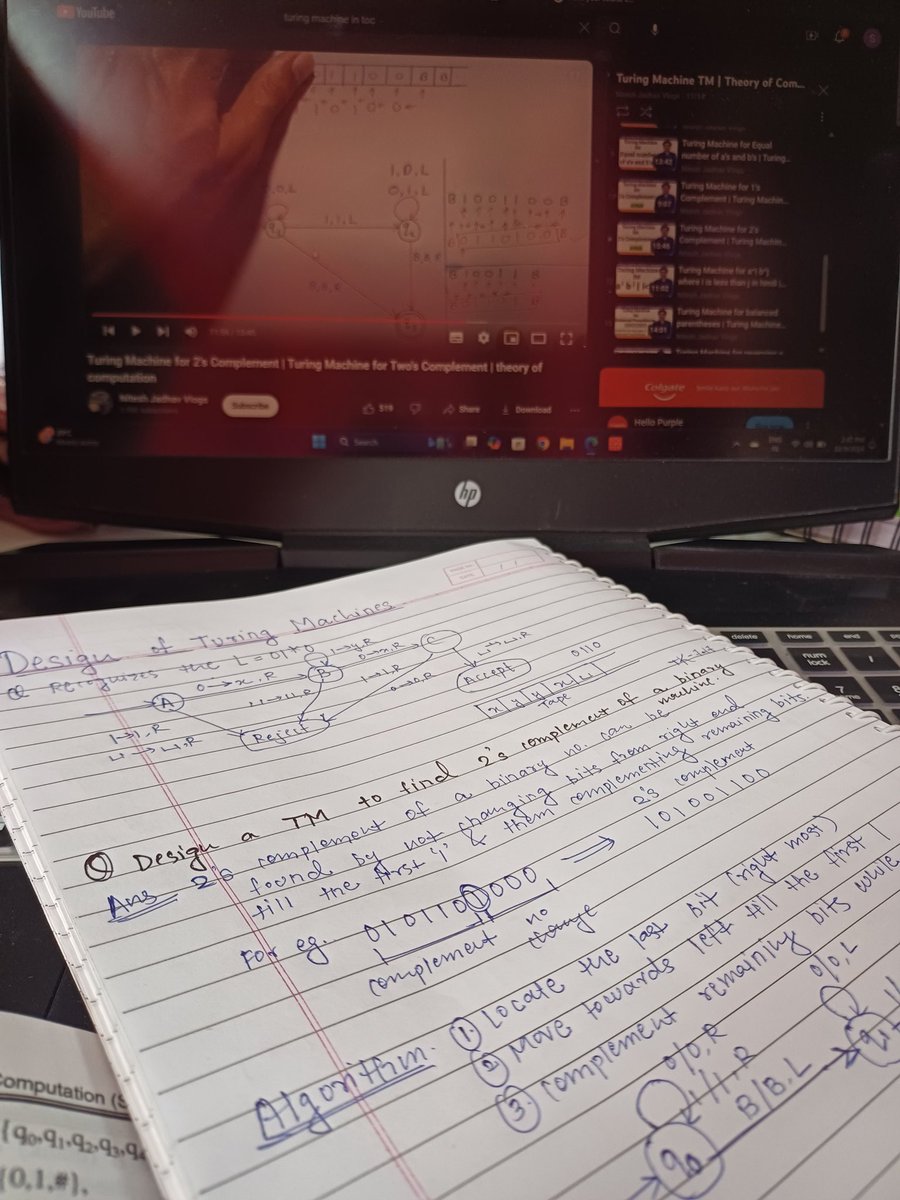 YouTube
turing machine in toc
Turing Machine TM | Theory of Com...
Nitesh Jadhav Vlogs
1 1 0 0 B B
1,0,L
0,1,L
1,1,L
B,B,R
B,B,R
B 1 0 0 1 1 0 0 B
B 1 0 0 1 1 B
Turing Machine for Equal
number of a's and b's | Turing...
13:42
Turing Machine for 1's
Complement | Turing Machin...
9:07
Turing Machine for 2's
Complement | Turing Machin...
Turing Machine for
where i is less than j in hindi |...
11:02
Turing Machine for balanced
parentheses | Turing Machine...
14:01
Turing Machine for 2's Complement | Turing Machine for Two's Complement | theory of
computation
Nitesh Jadhav Vlogs
Subscribe
519
Share
Download
Colgate
Hello Purple
Search
hp
delete
home
end
num
lock
7
PAGE NO.
DATE
Design of Turing Machines
Recognizes the L = 01*0
A
0→x,R
B
1→y,R
0→x,R
C
⊔→⊔,R
Accept
1→1,R
⊔→⊔,R
1→1,R
0→0,R
Reject
0110
x y y x ⊔
Tape
Q Design a TM to find 2's complement of a binary
machine.
Ans 2's complement of a binary no. can be
found by not changing bits from right end
till the first '1' & then complementing remaining bits.
For eg. 010110100 → 2's complement
101001100
complement no
change
Algorithm. ① Locate the last bit (right most)
② Move towards left till the first 1
③ complement remaining bits while
0/0,R
1/1,R
B/B,L
0/0,L
q0
q1
Computation
{q0,q1,q2,q3,q4
{0,1,#},